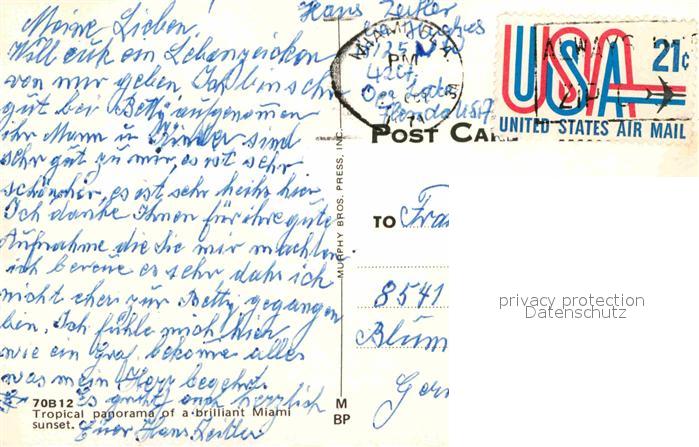 Meine Lieben!
Will euch ein Lebenzeichen
von mir geben. Ich bin sehr
gut bei Betty aufgenommen
ihr Mann u. Kinder sind
sehr gut zu mir, es ist sehr
schön hier, es ist sehr heihs hier
Ich danke Ihnen für ihre gute
Aufnahme die Sie mir machten
ich bereue es sehr dahs ich
nicht eher zur Betty gegangen
bin. Ich fühle mich hier
wie ein Graf bekome alles
was mein Herz begehrt.
Es grüßt euch herzlich
Euer Hans Zeitler
70B12
Tropical panorama of a brilliant Miami
sunset.
MURPHY BROS. PRESS, INC.
M
BP
Hans Zeitler
425
Florida USA
MIAMI
PM
ALWAYS USE
ZIP
USA 21¢
UNITED STATES AIR MAIL
POST CAR
TO Fra
8541
Blum
Ger
privacy protection
Datenschutz